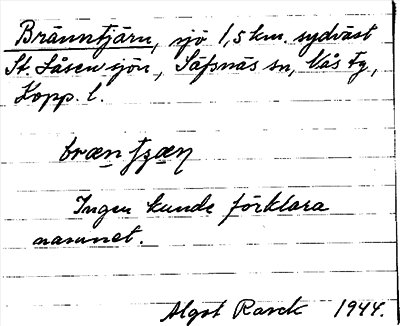 Bränntjärn, sjö 1,5 km. sydväst
St. Låsen sjön, Säfsnäs sn, Nås fg,
Kopp. l.
Ingen kunde förklara
namnet.
Algot Rarck 1944.